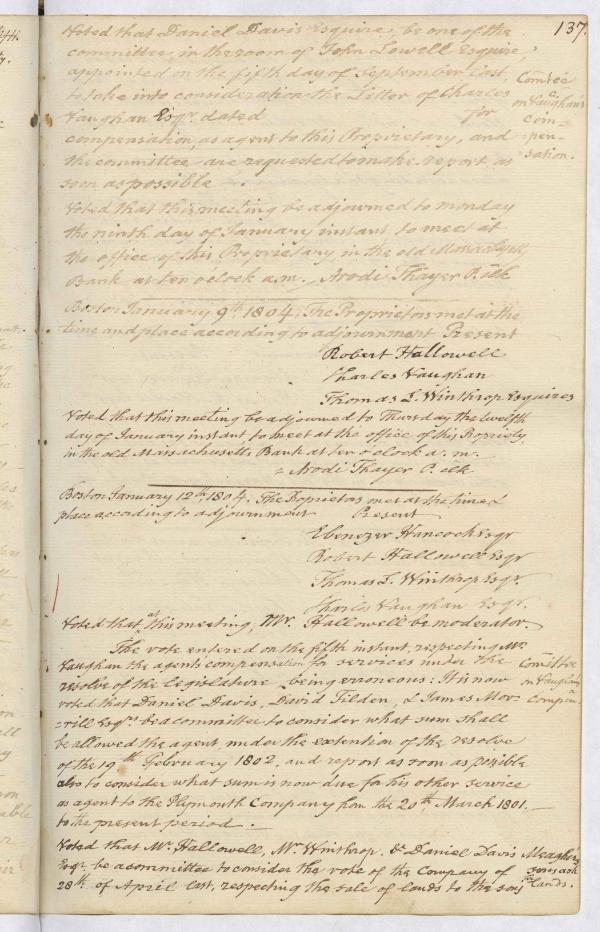 137.
Voted that Daniel Davis Esquire, be one of the
committee, in the room of John Lowell Esquire,
appointed on the fifth day of September last,
to take into consideration the Letter of Charles
Vaughan Esqr. dated for
compensation, as agent to this Proprietary, and
the committee are requested to make report as
soon as possible.
Comtee
on Vaughan's
com=
pen-
sation.
Voted that this meeting be adjourned to monday
the ninth day of January instant to meet at
the office of this Propriety in the old Massachusetts
Bank at ten o'clock a.m. Arodi Thayer P. clk
Boston January 9th. 1804. The Proprietors met at the
time and place according to adjournment Present
Robert Hallowell
Charles Vaughan
Thomas L. Winthrop Esquires
Voted that this meeting be adjourned to Thursday the twelfth
day of January instant to meet at the office of this Propriety,
in the old Massachusetts Bank at ten o'clock a. m.
= Arodi Thayer P. clk.
Boston January 12th. 1804. The Proprietors met at the time &
place according to adjournment Present
Ebenezer Hancock Esqr
Robert Hallowell Esqr
Thomas L. Winthrop Esqr.
Charles Vaughan Esqr.
Voted that at this meeting, Mr. Hallowell be moderator.
The vote entered on the fifth instant, respecting Mr.
Vaughan the agents compensation for services under the
resolve of the legislature being erroneous: It is now
voted that Daniel Davis, David Tilden, & James Mor-
=rill Esqrs. be a committee to consider what sum shall
be allowed the agent, under the extention of the resolve
of the 19th February 1802, and report as soon as possible
also to consider what sum is now due for his other service
as agent to the Plymouth Company from the 20th. March 1801.
to the present period.
Comittee
on Vaughans
compen.
Voted that Mr. Hallowell, Mr. Winthrop, & Daniel Davis
Esqr. be a committee to consider the vote of the Company of
28th. of April last, respecting the sale of lands to the sons
Meagher's
lands.